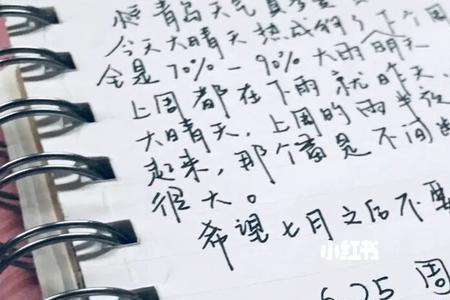 怪青岛天气真
今天大晴天热成狗了下个周
全是70%－90%大雨明天
上周都在下雨就昨天、
大晴天，上周的雨半夜
起来，那个雷是不间断
很大。
希望七月之后不要
小红书
6.25 周